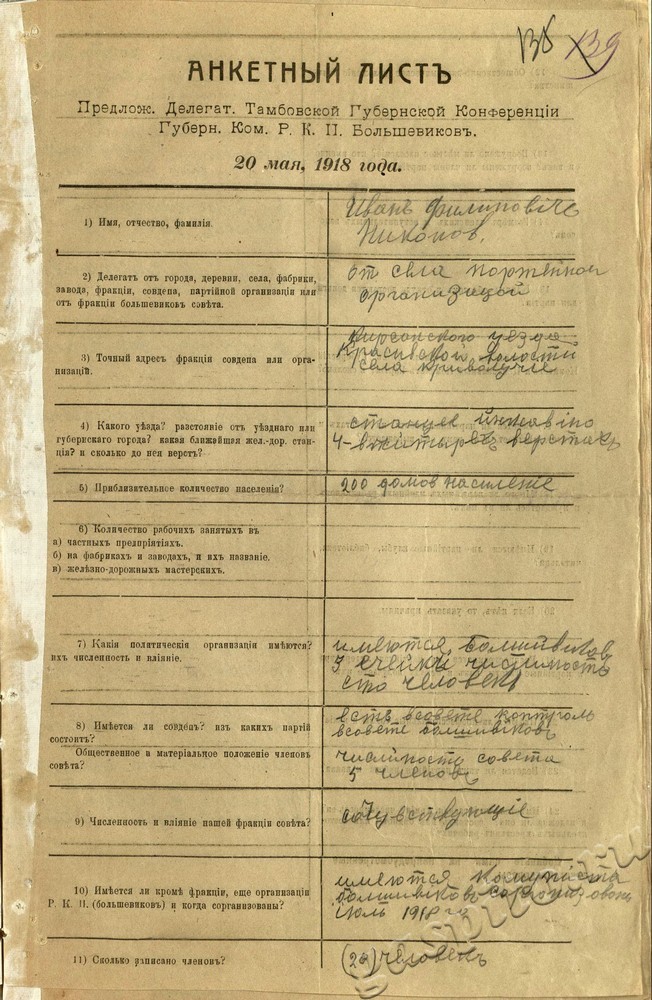 138 139
АНКЕТНЫЙ ЛИСТЪ
Предлож. Делегат. Тамбовской Губернской Конференціи
Губерн. Ком. Р. К. П. Большевиковъ.
20 мая, 1918 года.
1) Имя, отчество, фамилія.
Иванъ Филиповичъ
Никонов.
2) Делегатъ отъ города, деревни, села, фабрики,
завода, фракціи, совдепа, партійной организаціи или
отъ фракціи большевиковъ совѣта.
от села
организацой
3) Точный адресъ фракціи совдепа или орга-
низацій.
Кирсанского уезда
волости
села криволучие
4) Какого уѣзда? разстояніе отъ уѣзднаго или
губернскаго города? какая ближайшая жел.-дор. стан-
ція? и сколько до нея верстъ?
станцие инжавіно
4- верстахъ
5) Приблизительное количество населенія?
200 домов население
6) Количество рабочихъ занятыхъ въ
а) частныхъ предпріятіяхъ.
б) на фабрикахъ и заводахъ, и ихъ названіе.
в) желѣзно-дорожныхъ мастерскихъ.
7) Какія политическія организаціи имѣются?
ихъ численность и вліяніе.
имеются
3 ечейки
сто человек
8) Имѣется ли совдепъ? изъ какихъ партій
состоитъ?
Общественное а матеріальное положеніе членовъ
совѣта?
есть всовете контроль
всовете
совета
5 членовъ
9) Численность и вліяніе нашей фракціи совѣта?
сочувствующіе
10) Имѣется ли кромѣ фракціи, еще организаціи
Р. К. П. (большевиковъ) и когда сорганизованы?
имеются
июль 1918 го
11) Сколько записано членовъ?
человекъ